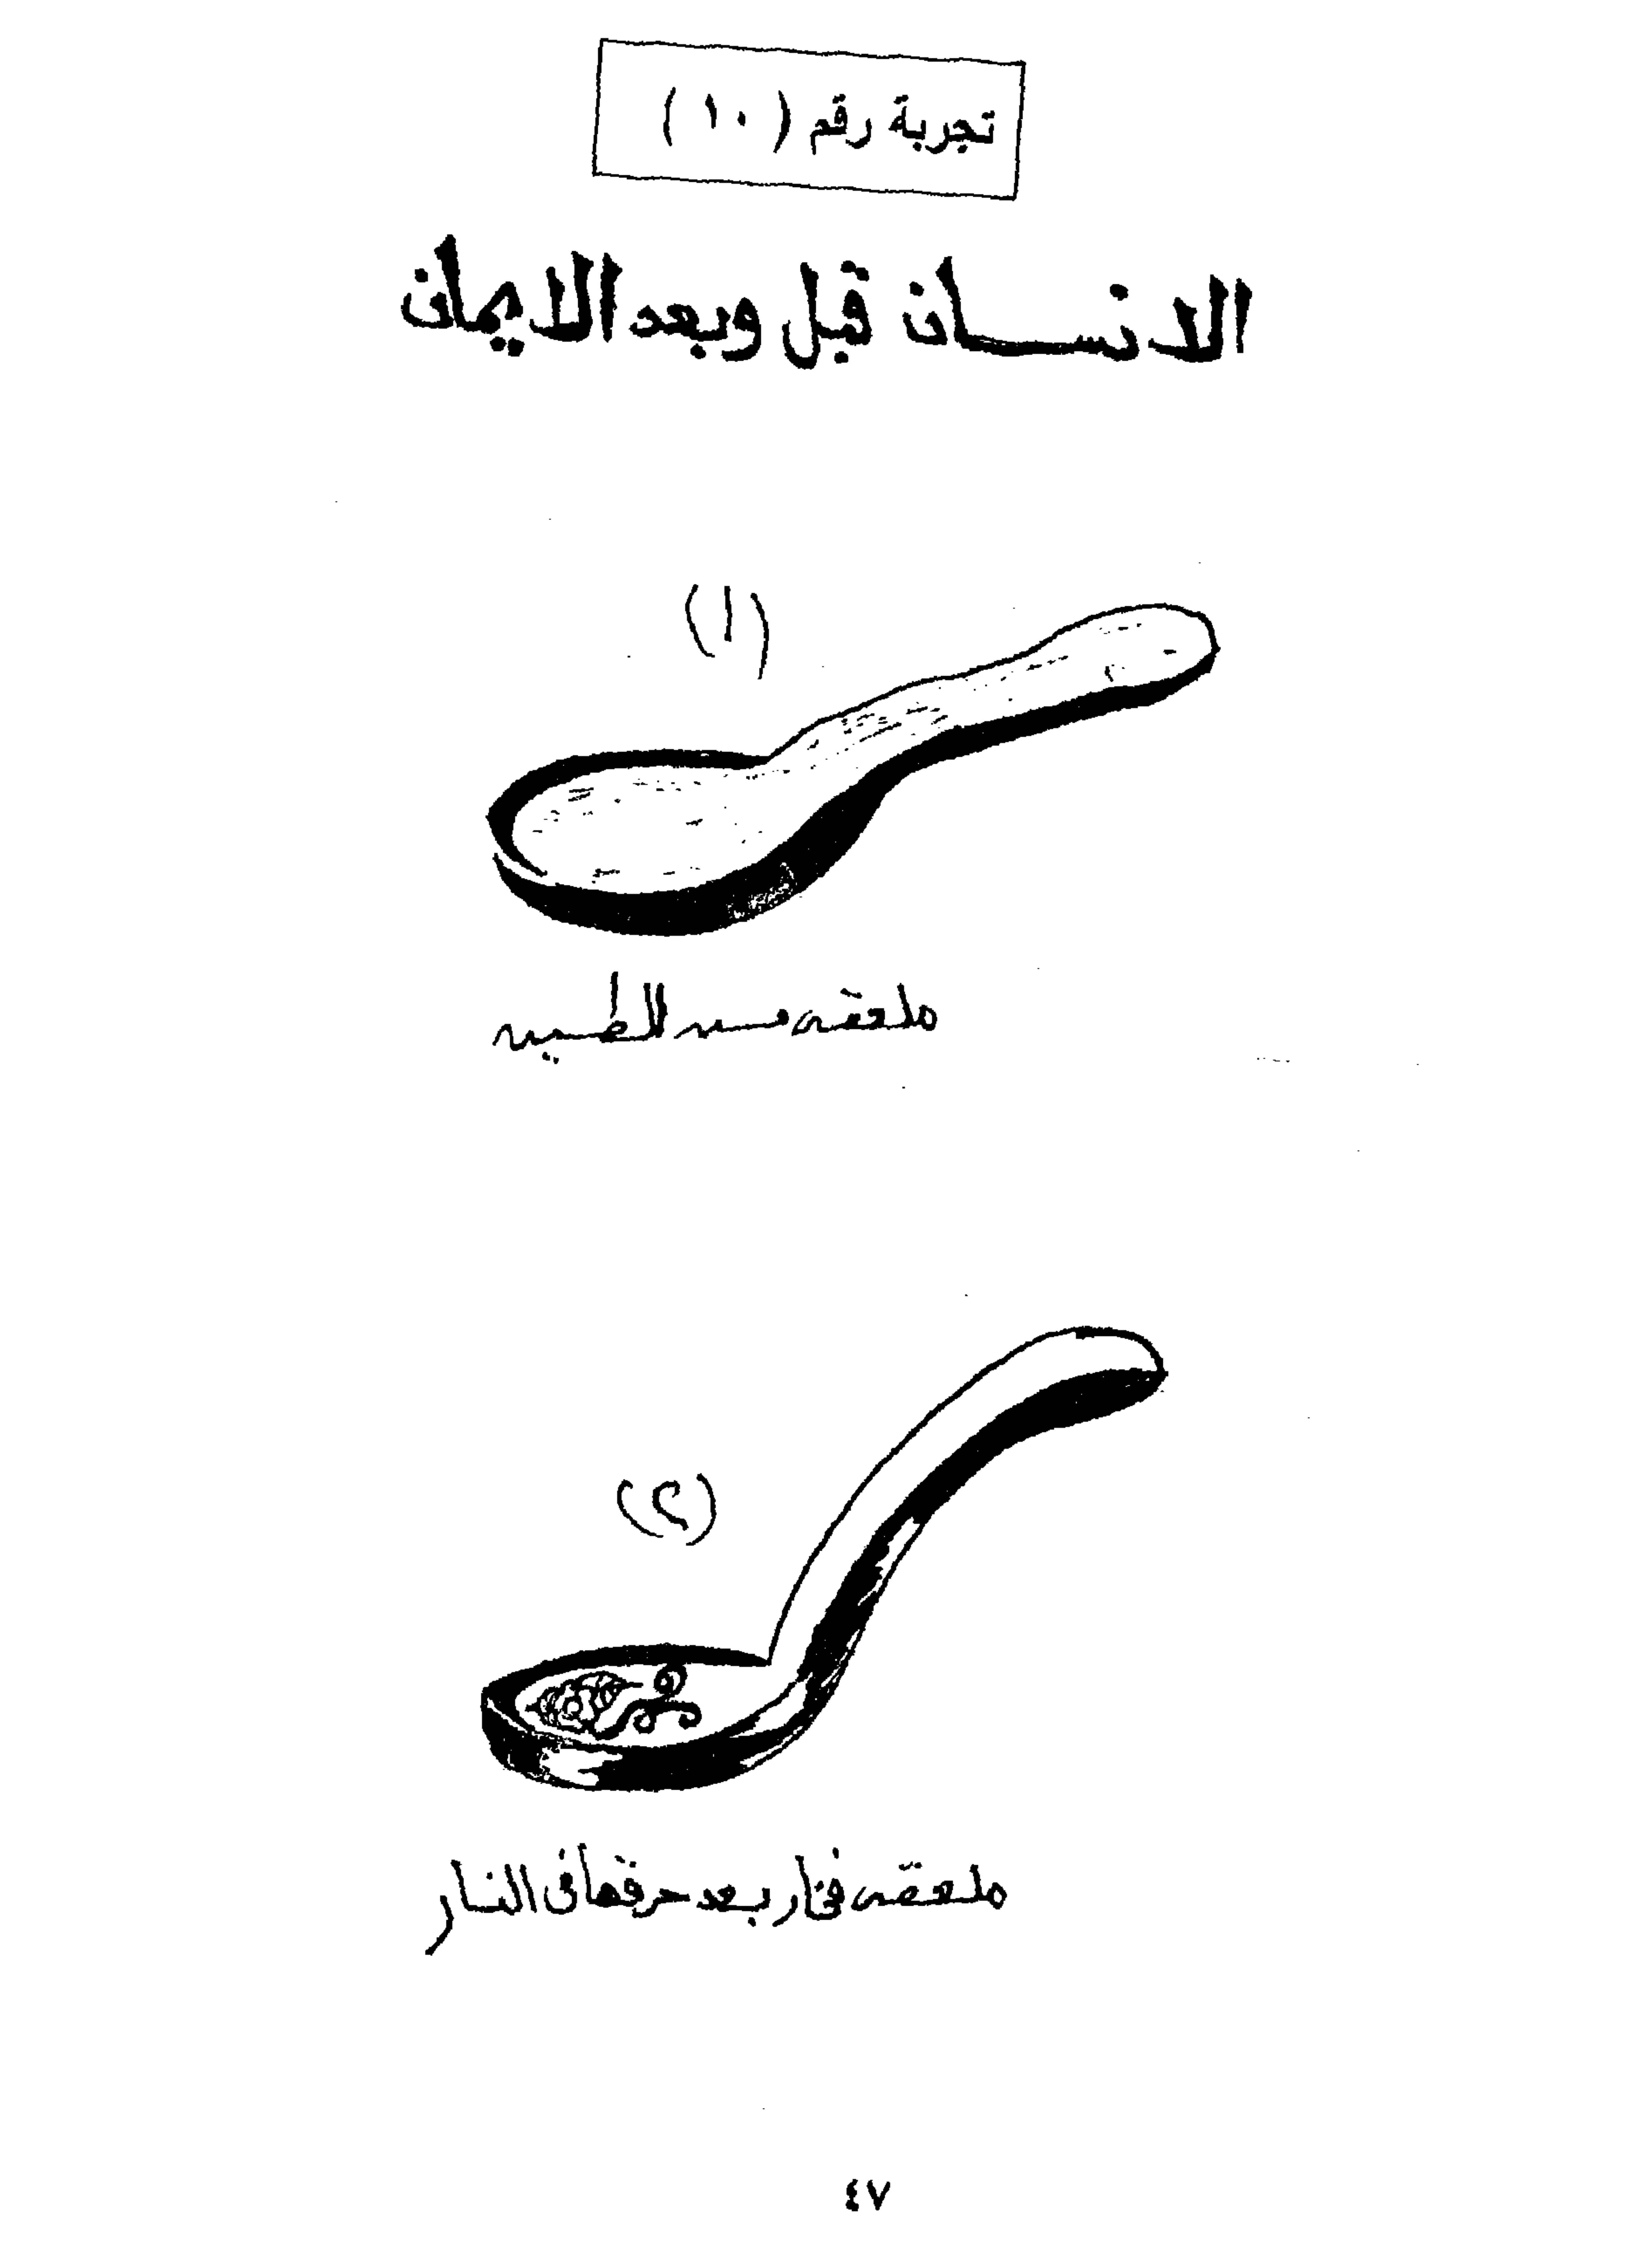 تجربة رقم ( ١٠ )
الانسان قبل وبعد الايمان
(١)
ملعقه من الطين
(٢)
ملعقه فخار بعد حرقها فى النار
٤٧